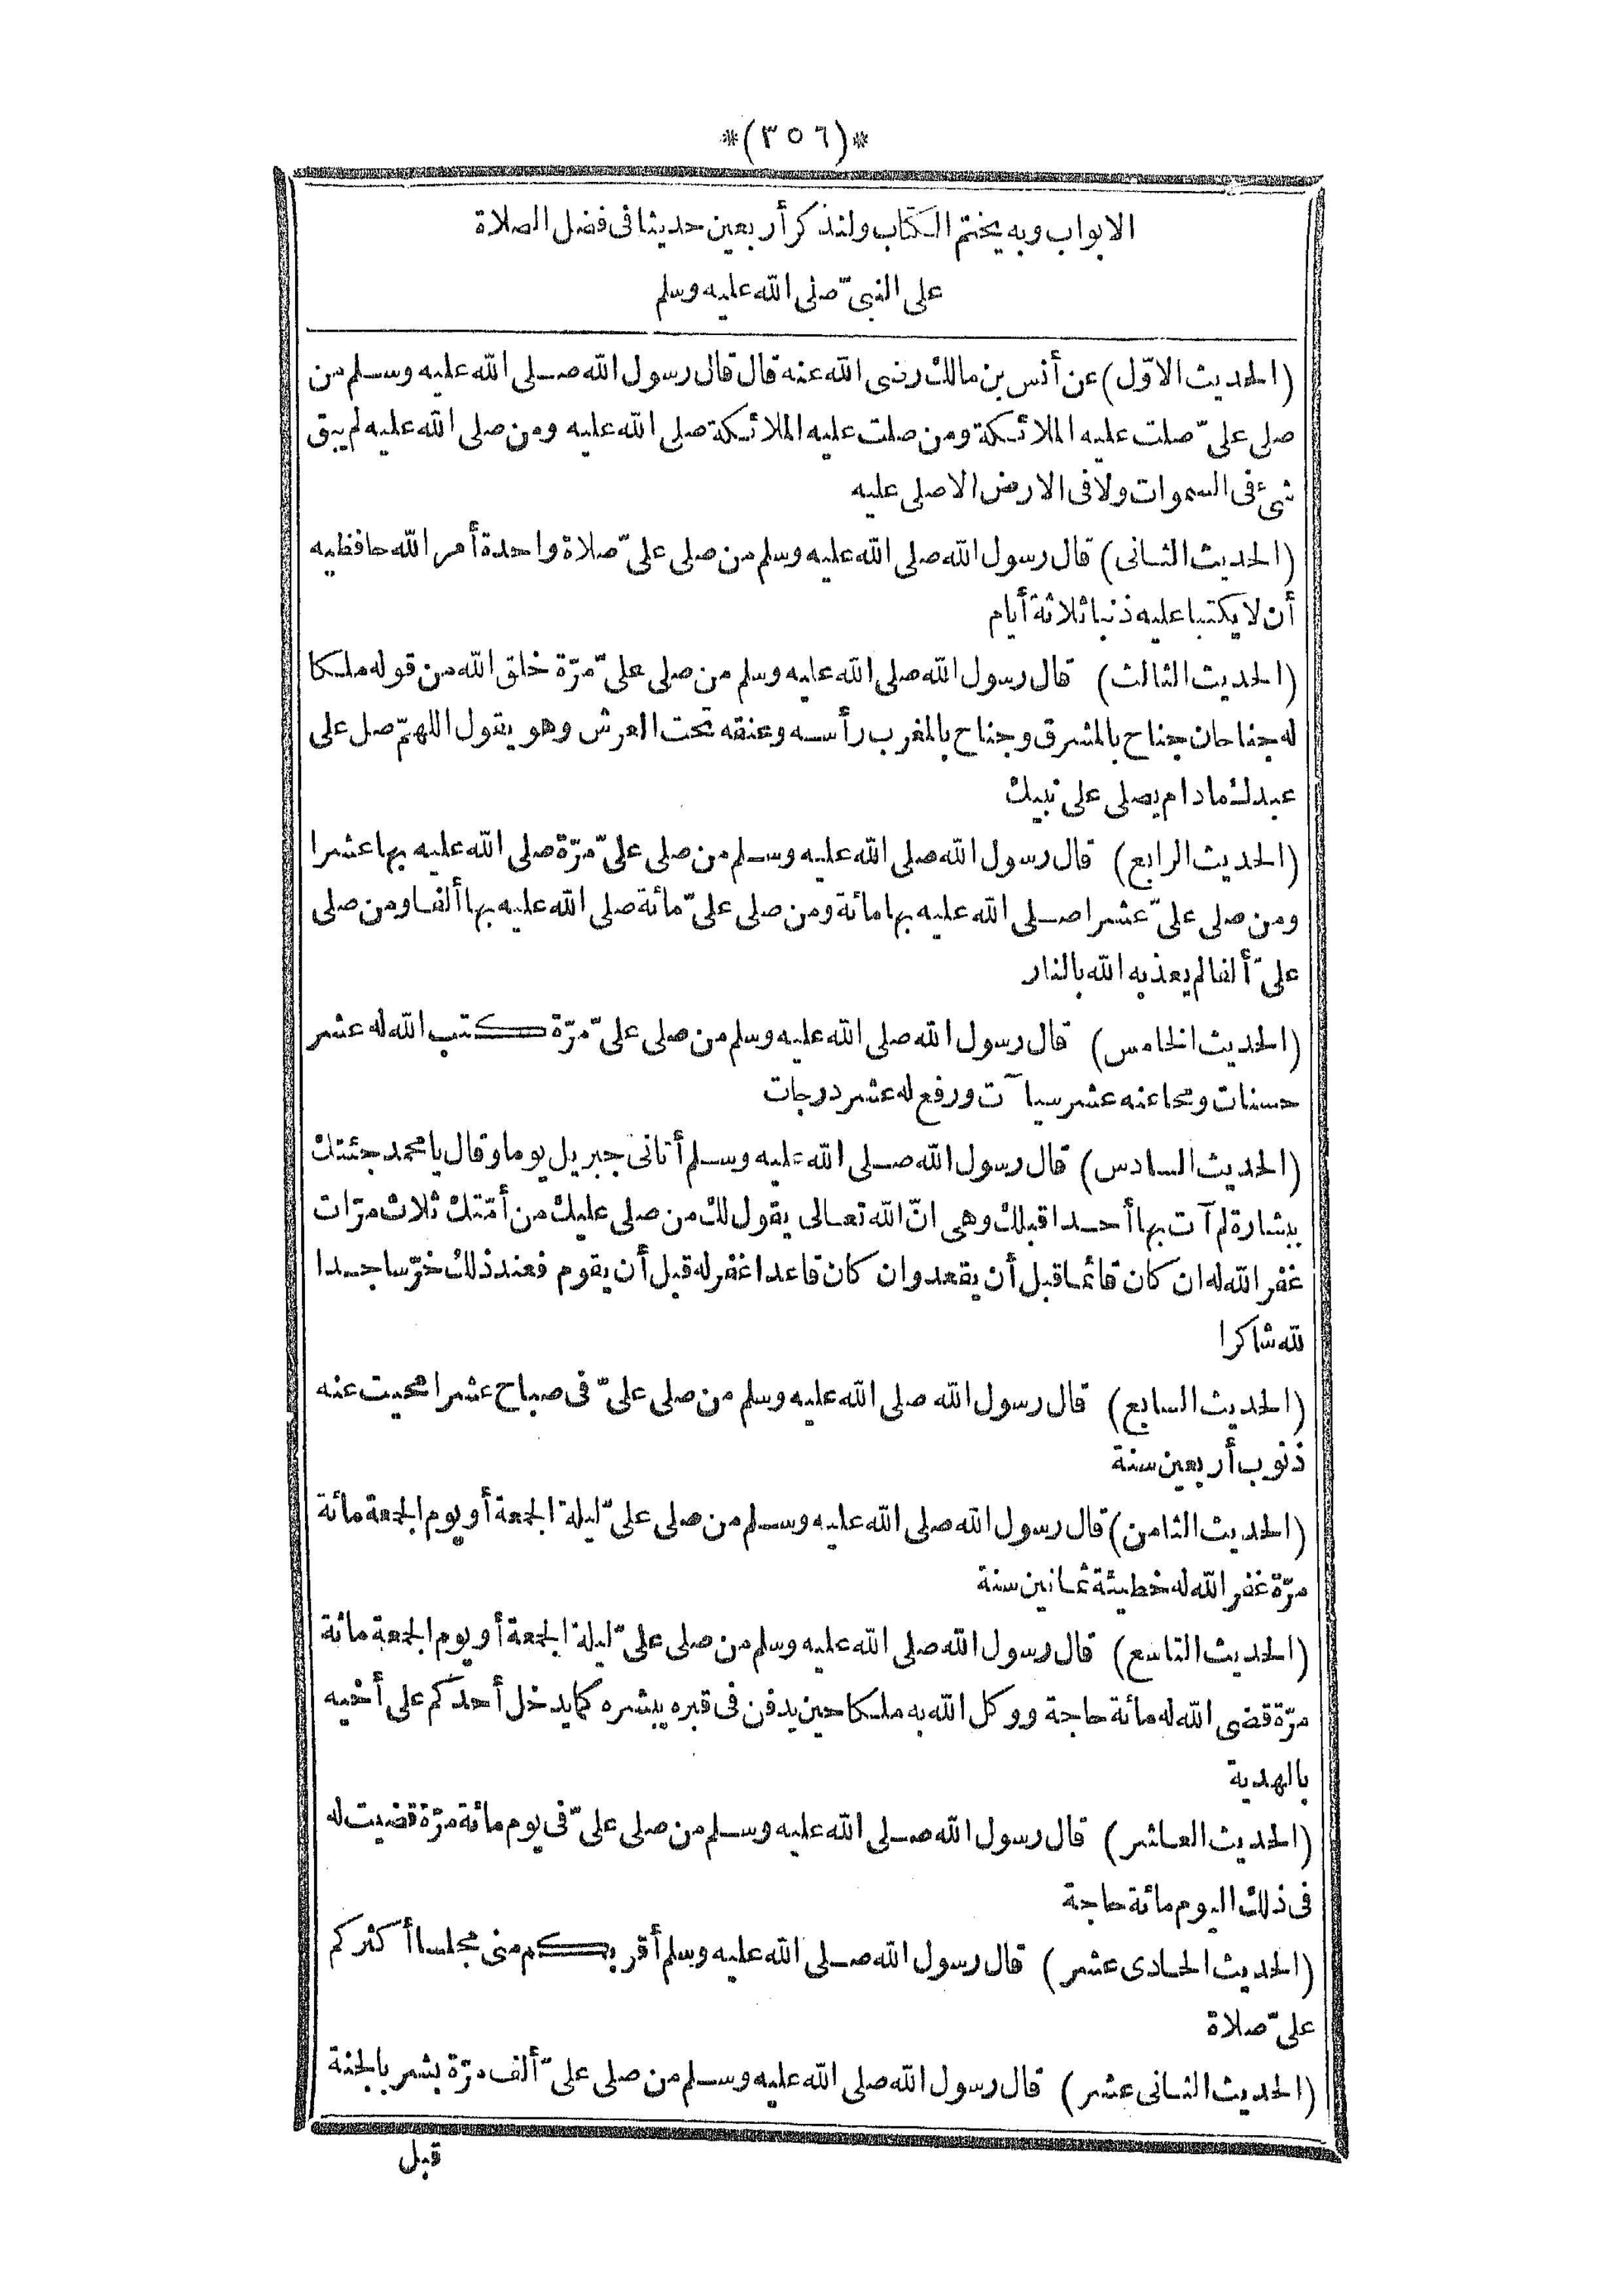 *(٣٥٦)*
الابواب وبه يختم الكتاب ولنذكر أربعين حديثا فى فضل الصلاة
على النبىّ صلى الله عليه وسلم
(الحديث الاوّل) عن أنس بن مالك رضى الله عنه قال قال رسول الله صلى الله عليه وسلم من
صلى علىّ صلت عليه الملائكة ومن صلت عليه الملائكة صلى الله عليه ومن صلى الله عليه لم يبق
شئ فى السموات ولا فى الارض الا صلى عليه
(الحديث الثانى) قال رسول الله صلى الله عليه وسلم من صلى علىّ صلاة واحدة أمر الله حافظيه
أن لا يكتبا عليه ذنبا ثلاثة أيام
(الحديث الثالث) قال رسول الله صلى الله عليه وسلم من صلى علىّ مرّة خلق الله من قوله ملكا
له جناحان جناح بالمشرق وجناح بالمغرب رأسه وعنقه تحت العرش وهو يقول اللهمّ صل على
عبدك مادام يصلى على نبيك
(الحديث الرابع) قال رسول الله صلى الله عليه وسلم من صلى علىّ مرّة صلى الله عليه بها عشرا
ومن صلى علىّ عشرا صلى الله عليه بها مائة ومن صلى علىّ مائة صلى الله عليه بها ألفا ومن صلى
علىّ ألفا لم يعذبه الله بالنار
(الحديث الخامس) قال رسول الله صلى الله عليه وسلم من صلى علىّ مرّة كتب الله له عشر
حسنات ومحا عنه عشر سيآت ورفع له عشر درجات
(الحديث السادس) قال رسول الله صلى الله عليه وسلم أتانى جبريل يوما وقال يا محمد جئتك
ببشارة لم آت بها أحدا قبلك وهى انّ الله تعالى يقول لك من صلى عليك من أمّتك ثلاث مرّات
غفر الله له ان كان قائما قبل أن يقعد وان كان قاعدا غفر له قبل أن يقوم فعند ذلك خرّ ساجدا
لله شاكرا
(الحديث السابع) قال رسول الله صلى الله عليه وسلم من صلى علىّ فى صباح عشرا محيت عنه
ذنوب أربعين سنة
(الحديث الثامن) قال رسول الله صلى الله عليه وسلم من صلى علىّ ليلة الجمعة أو يوم الجمعة مائة
مرّة غفر الله له خطيئة ثمانين سنة
(الحديث التاسع) قال رسول الله صلى الله عليه وسلم من صلى علىّ ليلة الجمعة أو يوم الجمعة مائة
مرّة قضى الله له مائة حاجة ووكل الله به ملكا حين يدفن فى قبره يبشره كما يدخل أحدكم على أخيه
بالهدية
(الحديث العاشر) قال رسول الله صلى الله عليه وسلم من صلى علىّ فى يوم مائة مرّة قضيت له
فى ذلك اليوم مائة حاجة
(الحديث الحادى عشر) قال رسول الله صلى الله عليه وسلم أقربكم منى مجلسا أكثركم
علىّ صلاة
(الحديث الثانى عشر) قال رسول الله صلى الله عليه وسلم من صلى علىّ ألف مرّة بشر بالجنة
قبل